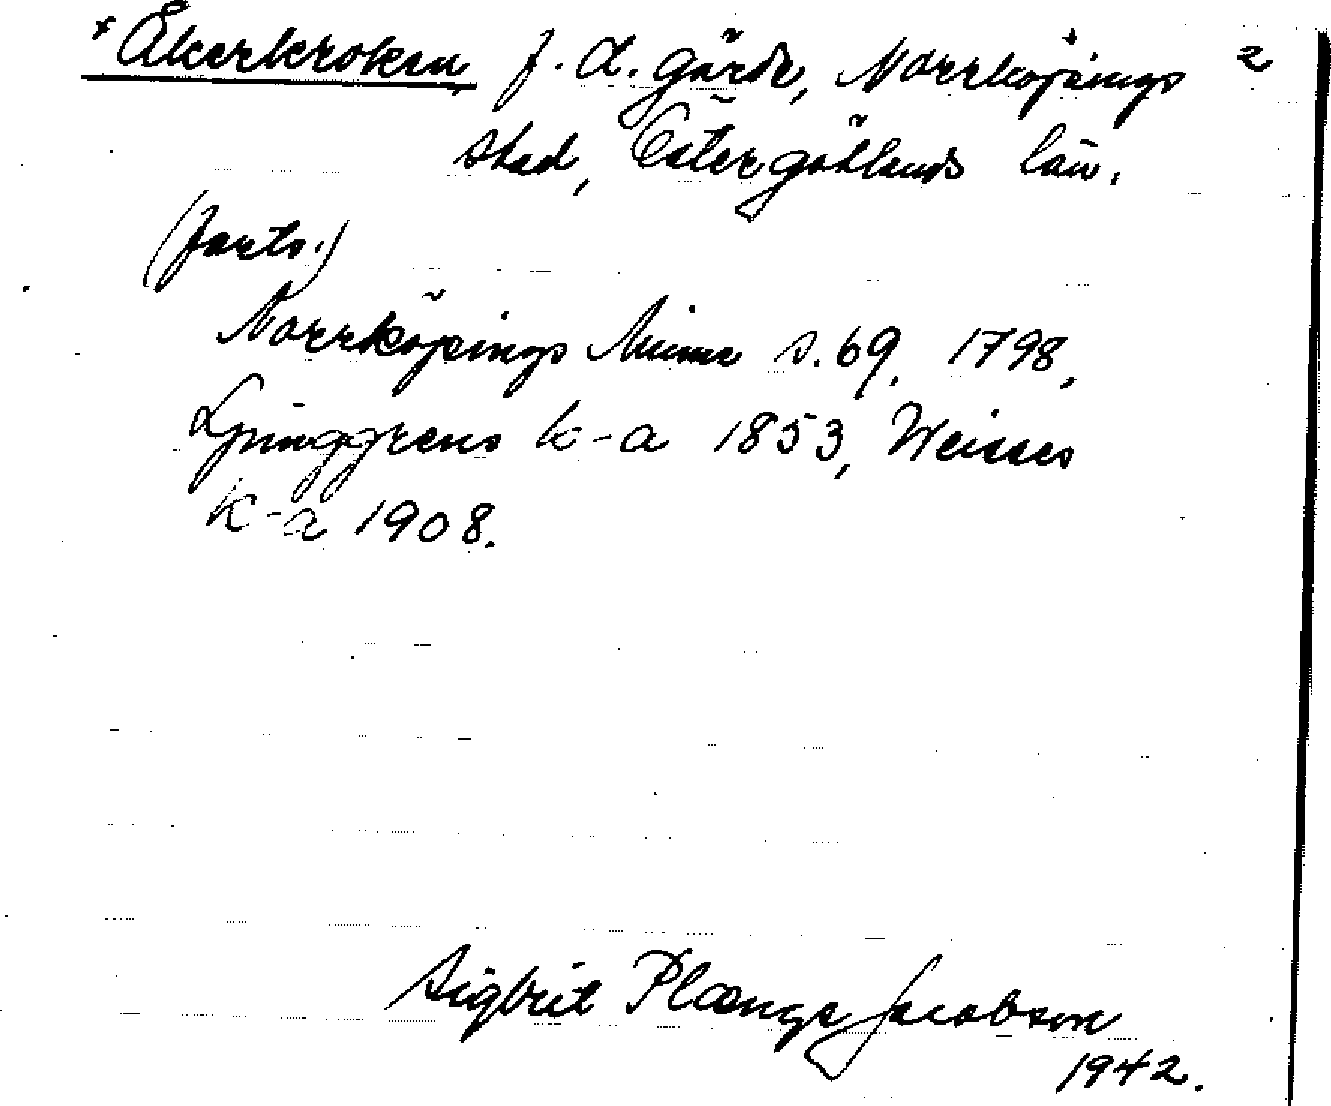 * Åkerkroken, f. d. gärde, Norrköpings 2
stad, Östergötlands län.
(forts.)
Norrköpings Minne s. 69, 1798,
Ljunggrens k-a 1853, Weisses
k-a 1908.
Sigbrit Plænge Jacobson
1942.